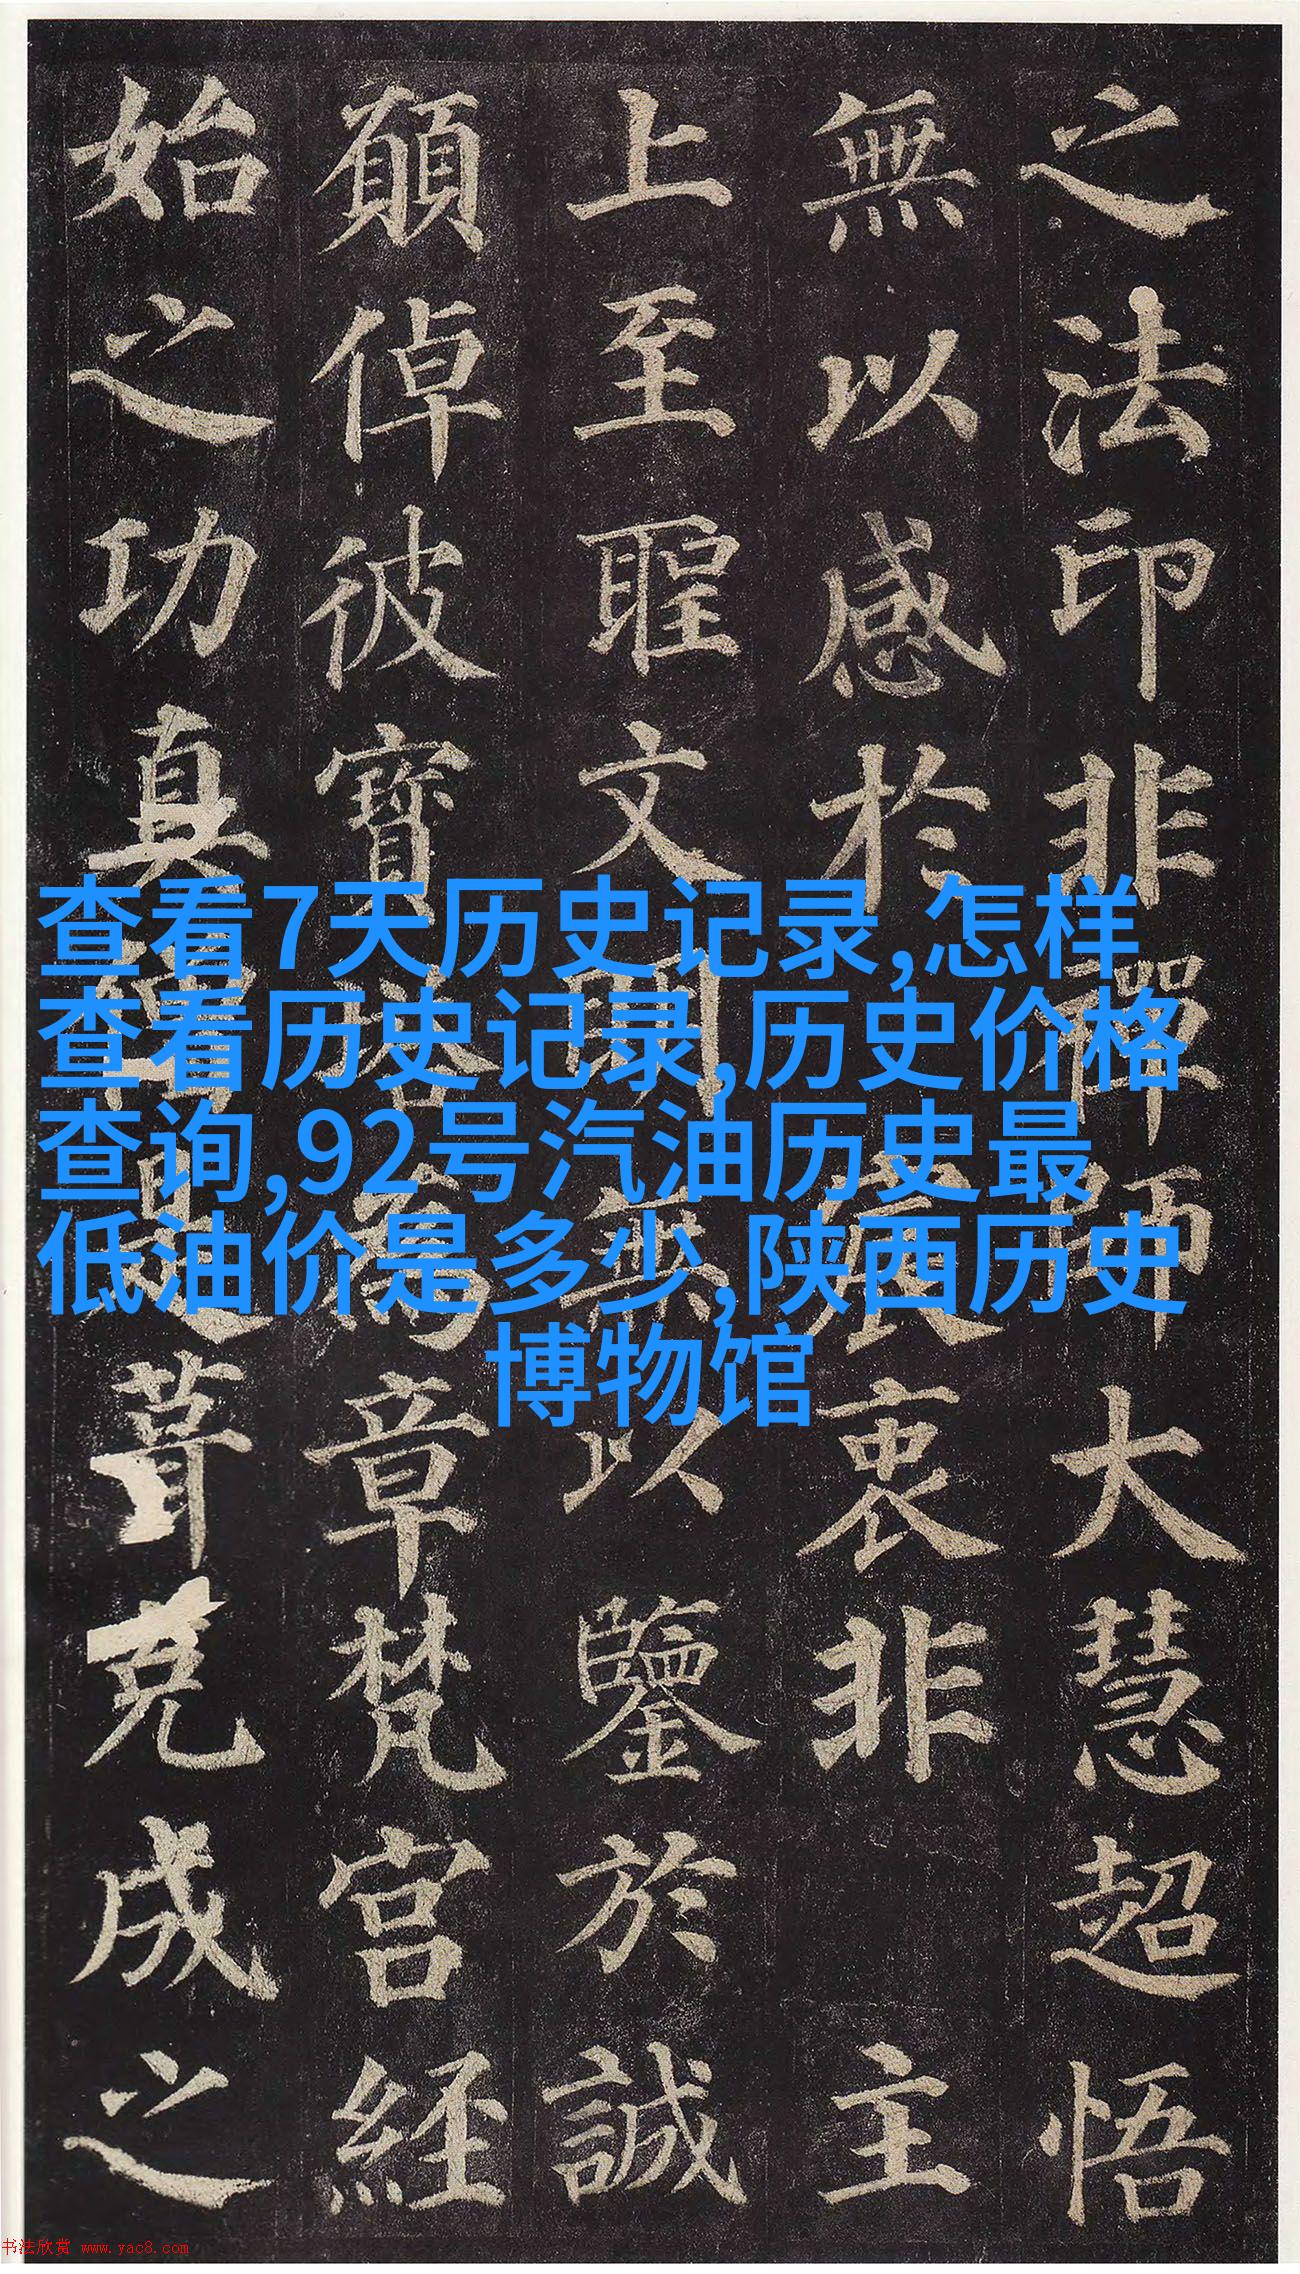 之法印非禪師大慧超悟
無以感於宸衷非主
上至聖文明無以鑒於誠
願倬彼寶塔為章梵宮經
始之功真僧是葺克成之
查看7天历史记录,怎样
查看历史记录,历史价格
查询,92号汽油历史最
低油价是多少,陕西历史
博物馆
书法欣赏 www.yac8.com